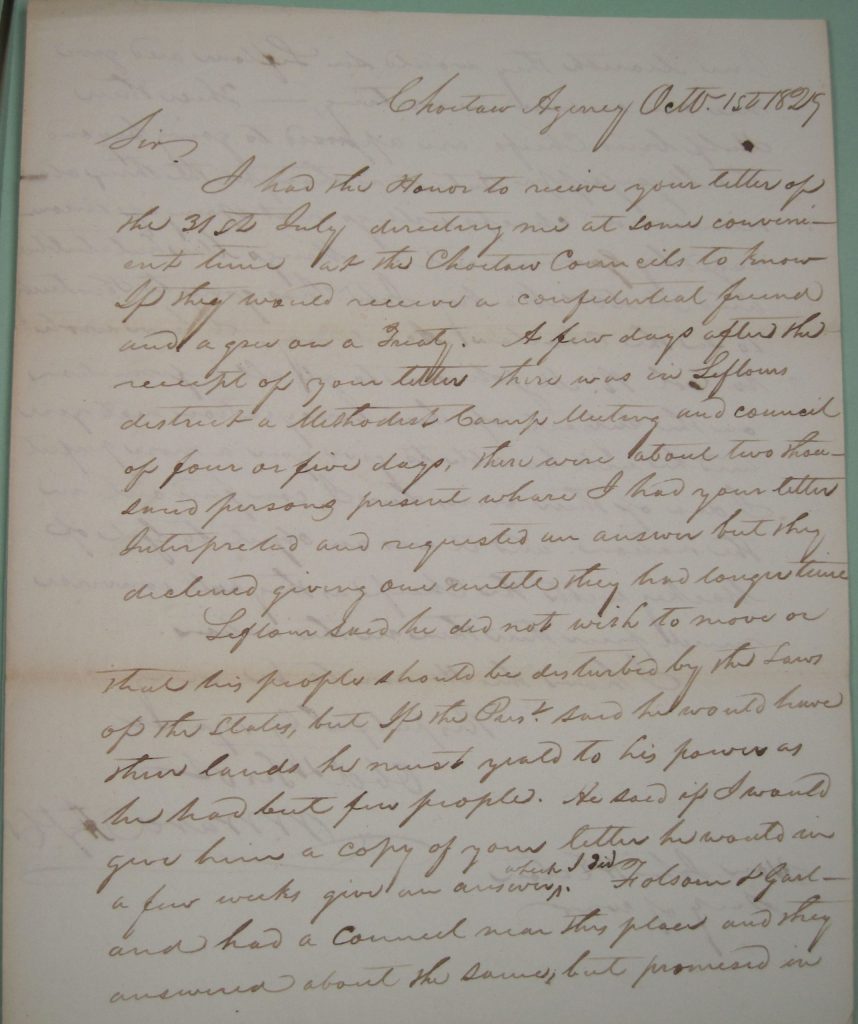 Choctaw Agency Octb. 1st 1829
Sir,
I had the Honor to recive your letter of
the 31st July directing me at some conveni–
ent time at the Choctaw Councils to know
If they would receive a confidential friend
and agree on a Treaty. A few days after the
receipt of your letter there was in Leflours
district a Methodist Camp Meeting and council
of four or five days, there were about two thou–
sand persons present whare I had your letter
Interpreted and requested an answer but they
declined giving one untile they had longer time
Leflour said he did not wish to move or
that his people should be disturbed by the Laws
of the States, but If the Prest. said he would have
their lands he must yeald to his power as
he had but few people. He said if I would
give him a copy of your letter he would in
a few weeks give an answer, which I did. Folsom & Garl–
and had a Council near this place and they
answered about the same, but promised in